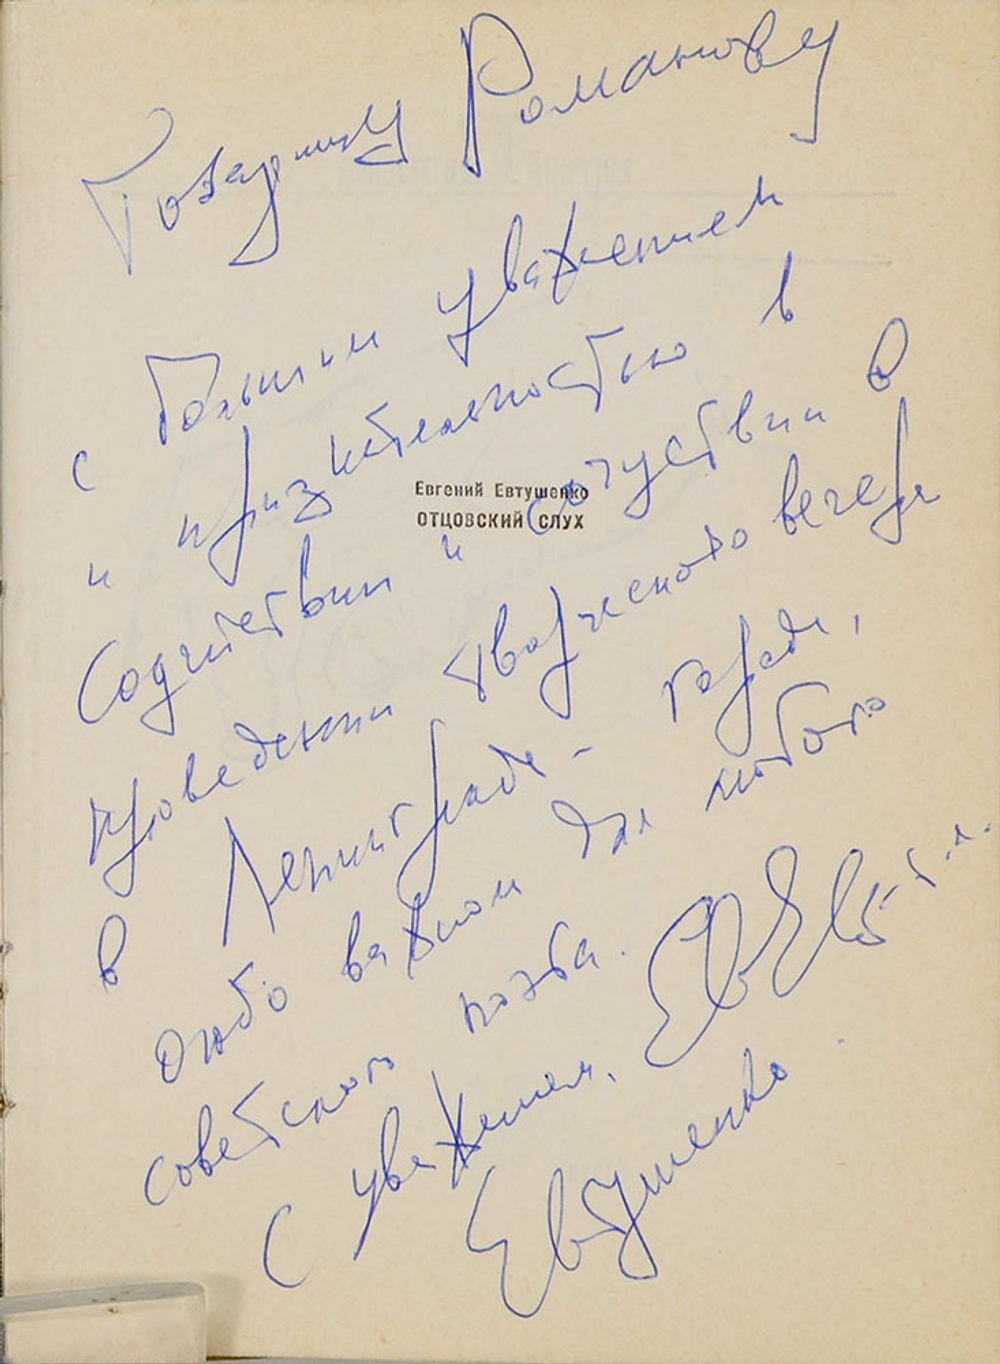 Товарищу Романову
с большим уважением
и признательностью в
Евгений Евтушенко
ОТЦОВСКИЙ СЛУХ
содействии и сочуствии в
проведении творческого вечера
в Ленинграде - городе,
особо важном для любого
советского поэта.
С уважением,
Евтушенко